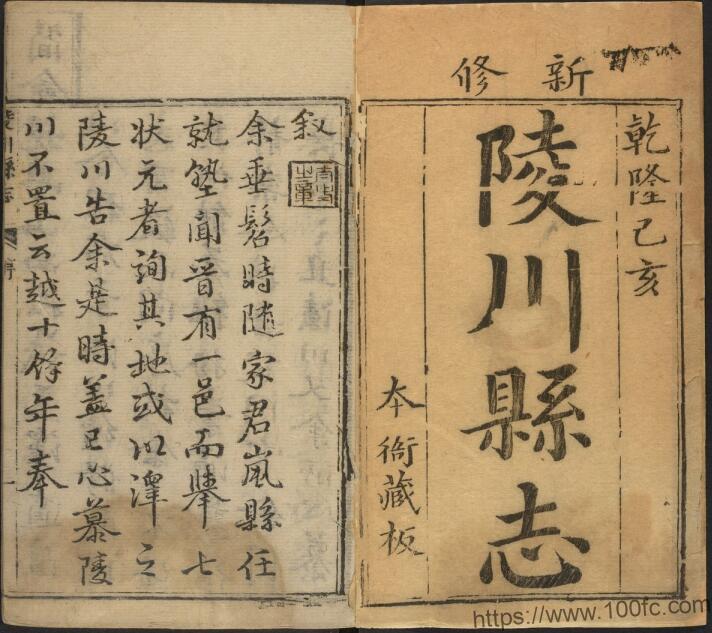 新修
乾隆己亥
陵川縣志
本衙藏板
叙
余垂髫時随家君嵐縣任
就塾聞晉有一邑而舉七
状元者詢其地或以澤之
陵川告余是時盖已心慕陵
川不置云越十餘年奉
陵川縣志
https://www.100fc.com